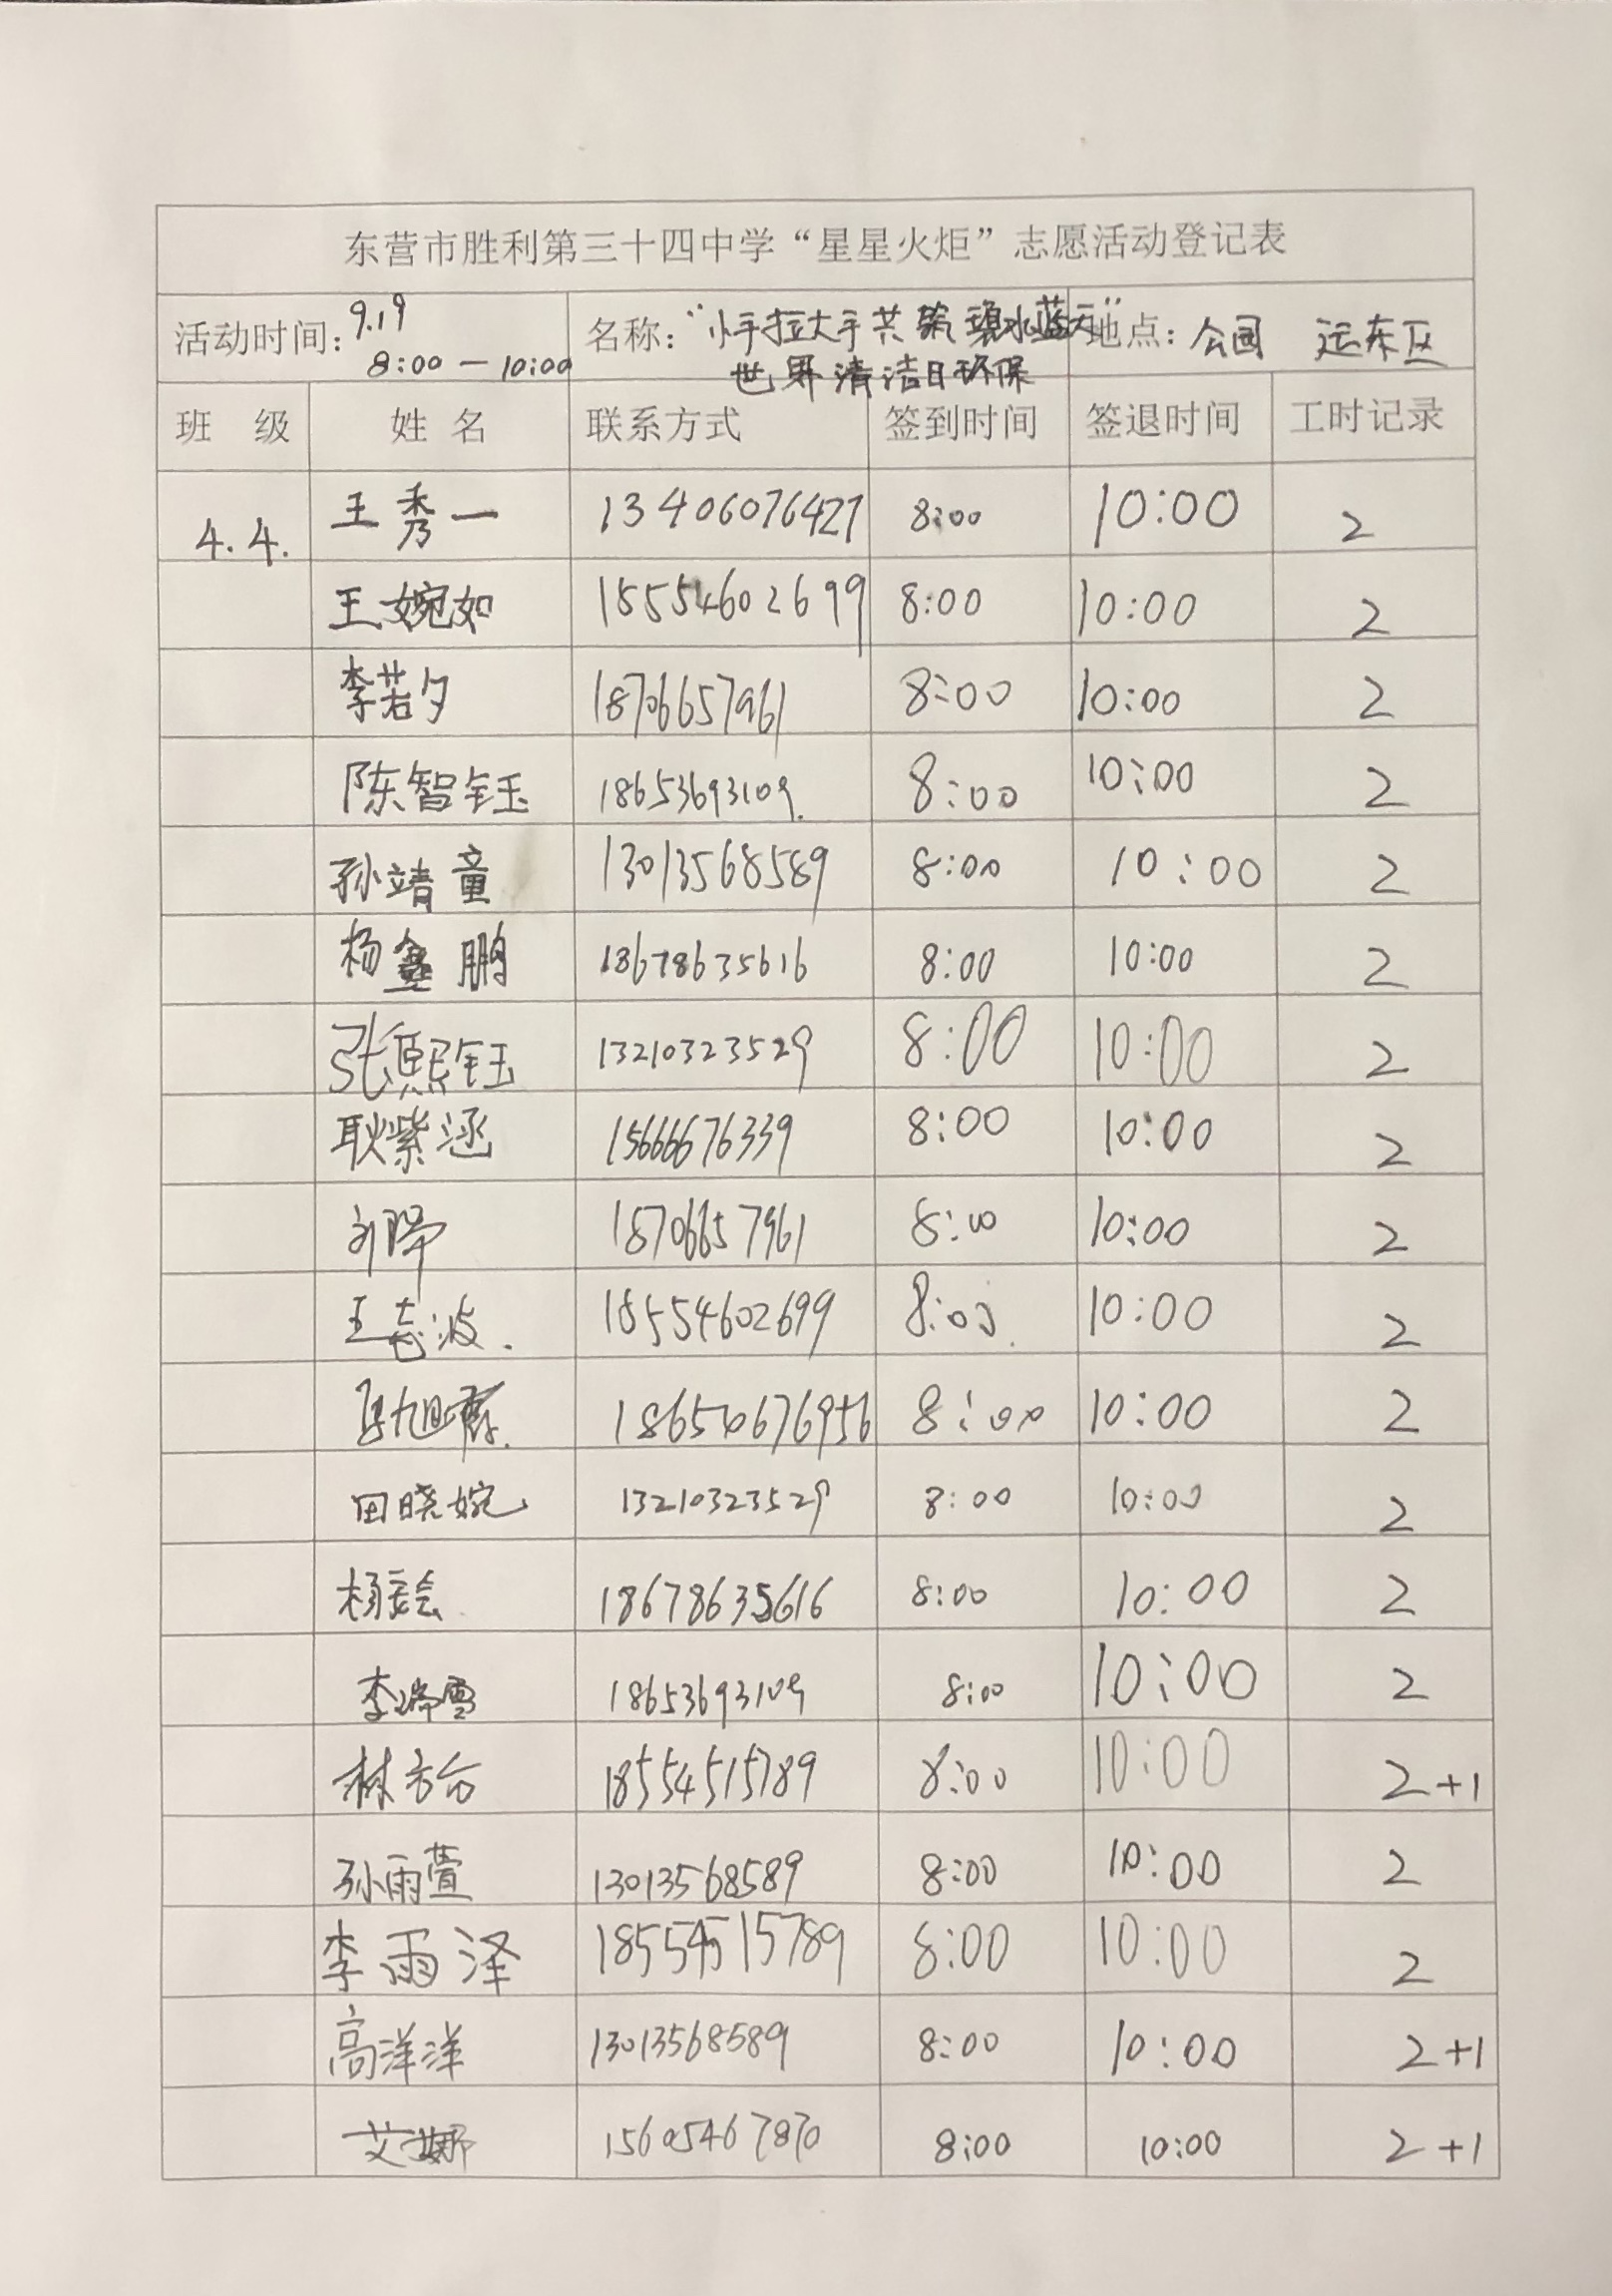 东营市胜利第三十四中学“星星火炬”志愿活动登记表
活动时间: 9.19 8:00—10:00 名称: “小手拉大手共筑碧水蓝天” 世界清洁日环保 地点: 公园 运东区
班 级 姓 名 联系方式 签到时间 签退时间 工时记录
4.4. 王秀一 13406076427 8:00 10:00 2
王婉如 18554602699 8:00 10:00 2
李若夕 18706657961 8:00 10:00 2
陈智钰 18653693109. 8:00 10:00 2
孙靖童 13013568589 8:00 10:00 2
杨鑫鹏 18678635616 8:00 10:00 2
张熙钰 13210323529 8:00 10:00 2
耿紫涵 15666676339 8:00 10:00 2
18706657961 8:00 10:00 2
王志波. 18554602699 8:00. 10:00 2
8:00 10:00 2
田晓婉 13210323529 8:00 10:00 2
杨 18678635616 8:00 10:00 2
李瑞雪 18653693109 8:00 10:00 2
林方台 18554515789 8:00 10:00 2+1
孙雨萱 13013568589 8:00 10:00 2
李雨泽 18554515789 8:00 10:00 2
高洋洋 13013568589 8:00 10:00 2+1
艾娜 15605467870 8:00 10:00 2+1